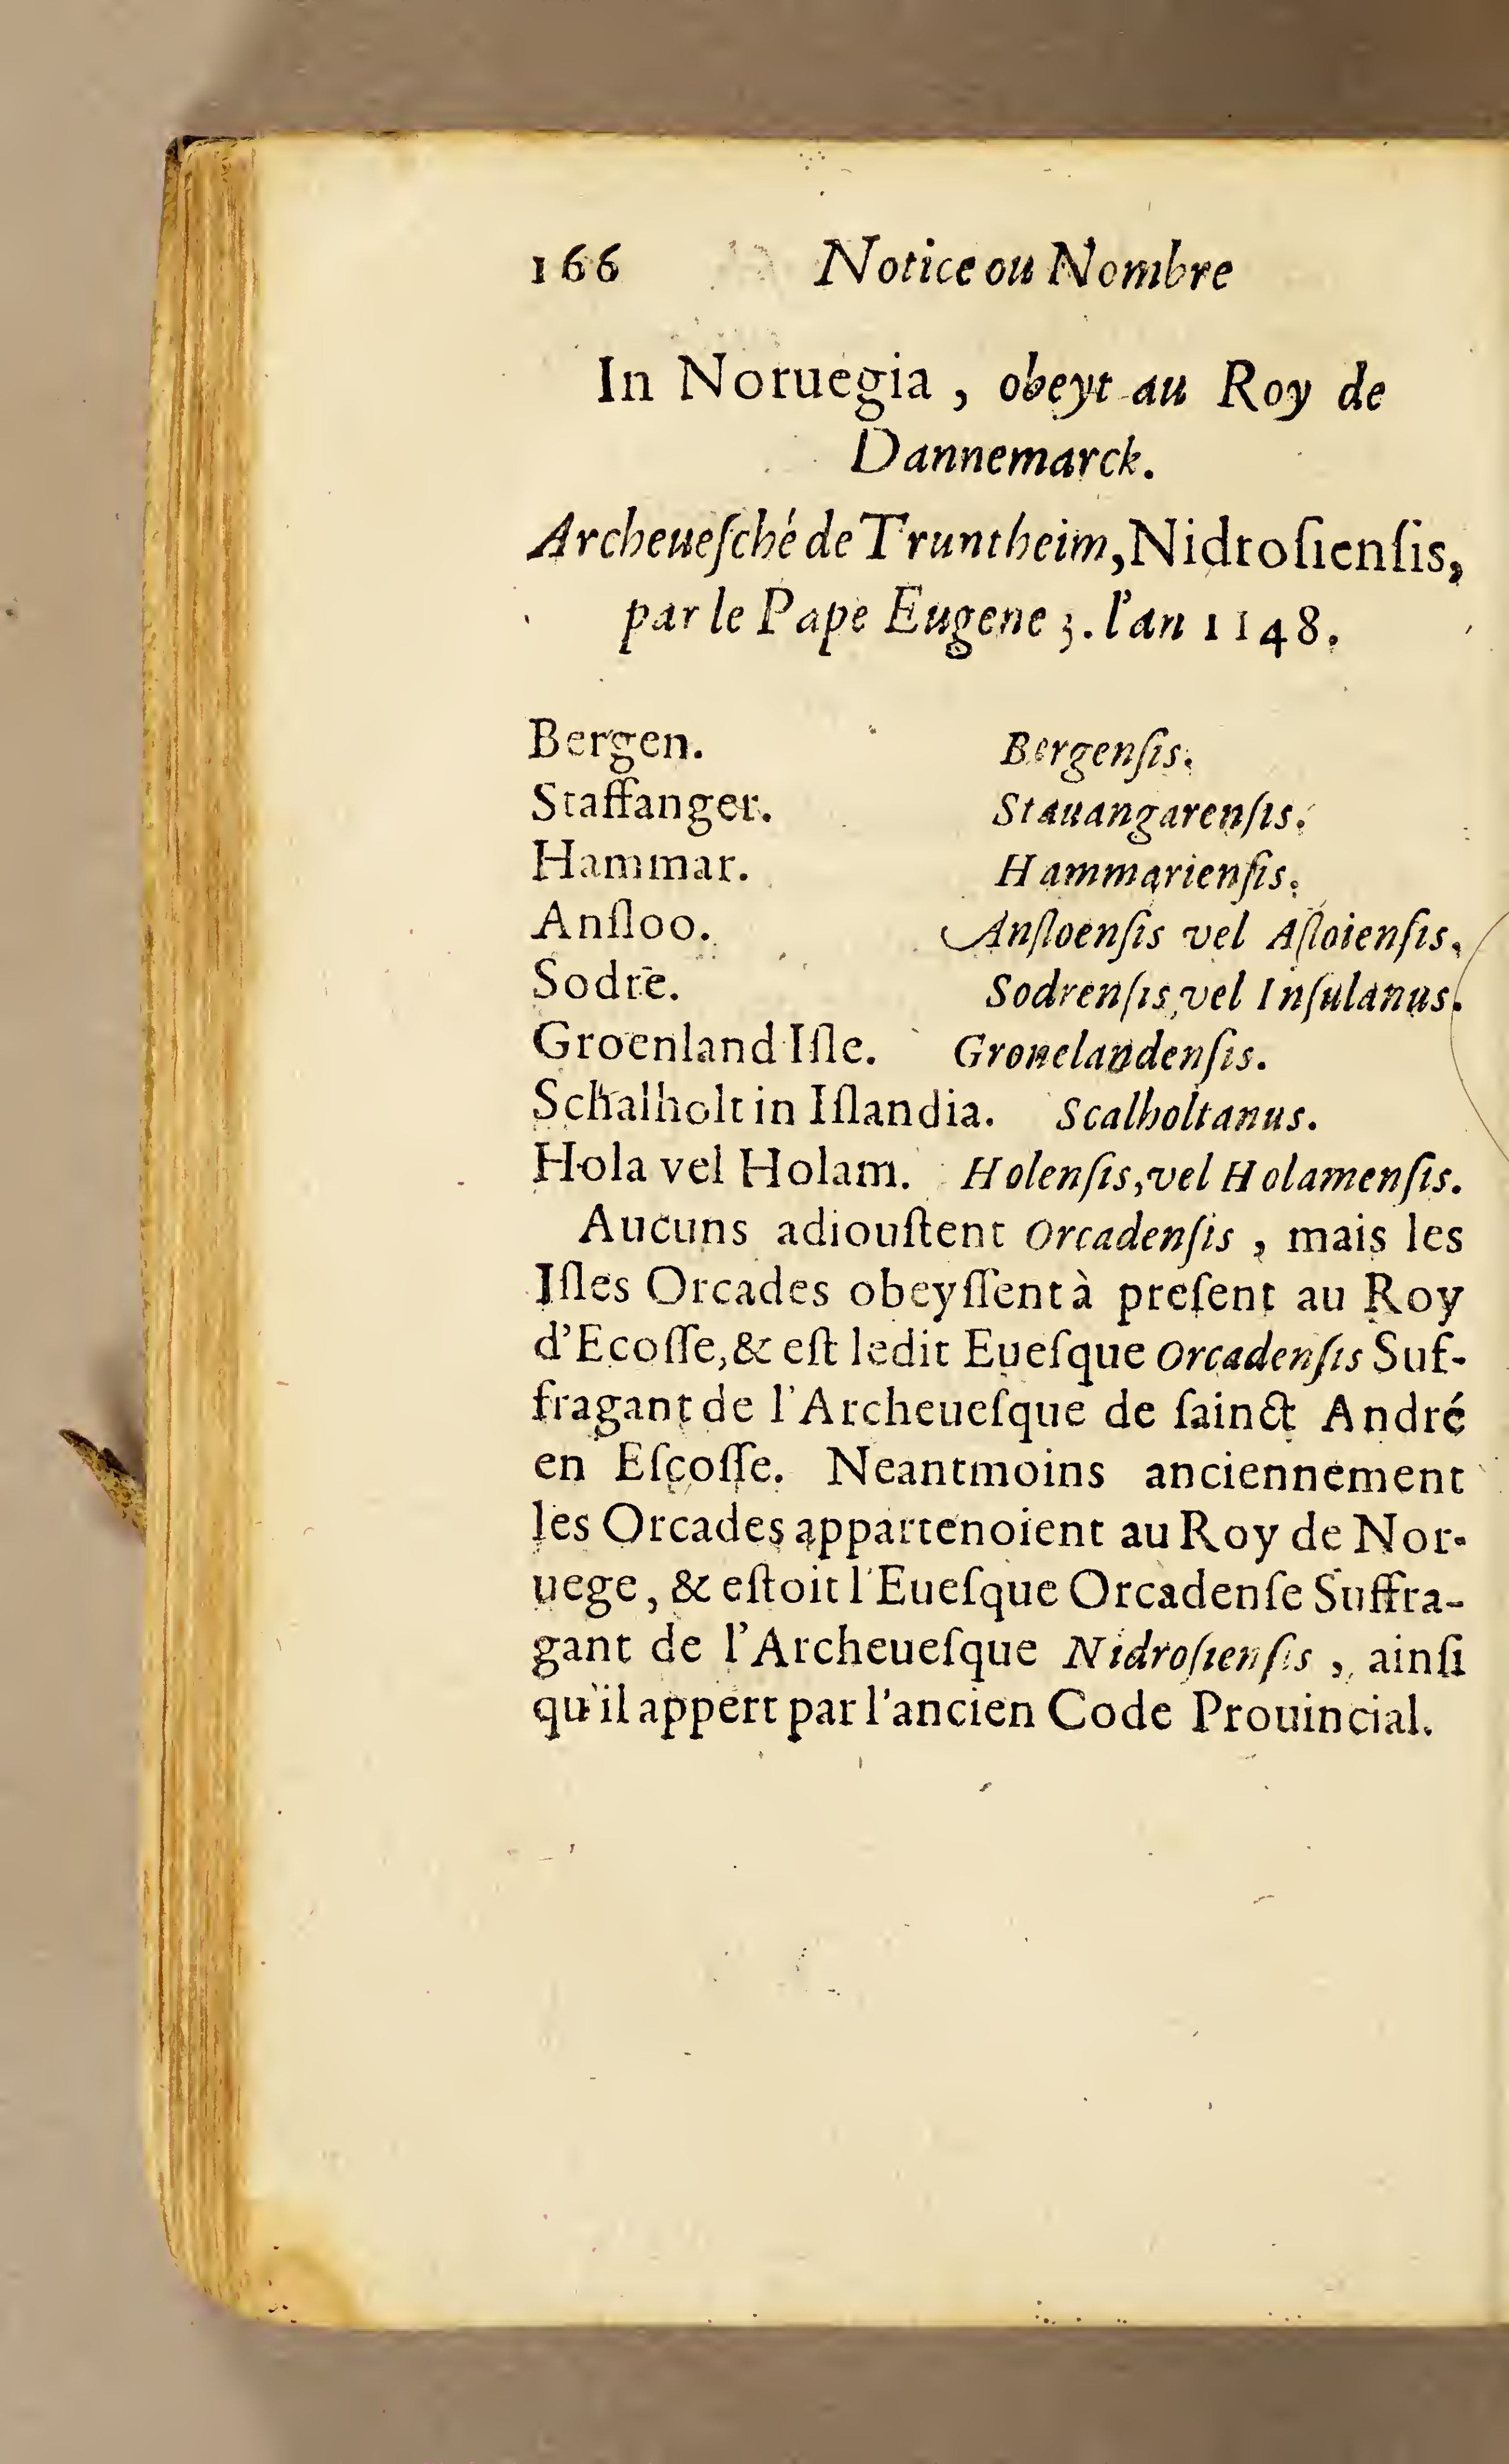 166 Notice ou Nombre
In Noruegia, obeyt au Roy de
Dannemarck.
Archeueſché de Truntheim, Nidroſienſis,
par le Pape Eugene 3. l'an 1148.
Bergen. Bergenſis.
Staffanger. Stauangarenſis.
Hammar. Hammarienſis.
Anſloo. Anſloenſis vel Aſloienſis.
Sodre. Sodrenſis, vel Inſulanus.
Groenland Iſle. Gronelandenſis.
Schalholt in Iſlandia. Scalholtanus.
Hola vel Holam. Holenſis, vel Holamenſis.
Aucuns adiouſtent Orcadenſis, mais les
Iſles Orcades obeyſſent à preſent au Roy
d'Ecoſſe, & eſt ledit Eueſque Orcadenſis Suf-
fragant de l'Archeueſque de ſainct André
en Eſcoſſe. Neantmoins anciennement
les Orcades appartenoient au Roy de Nor-
uege, & eſtoit l'Eueſque Orcadenſe Suffra-
gant de l'Archeueſque Nidroſienſis, ainſi
qu'il appert par l'ancien Code Prouincial.